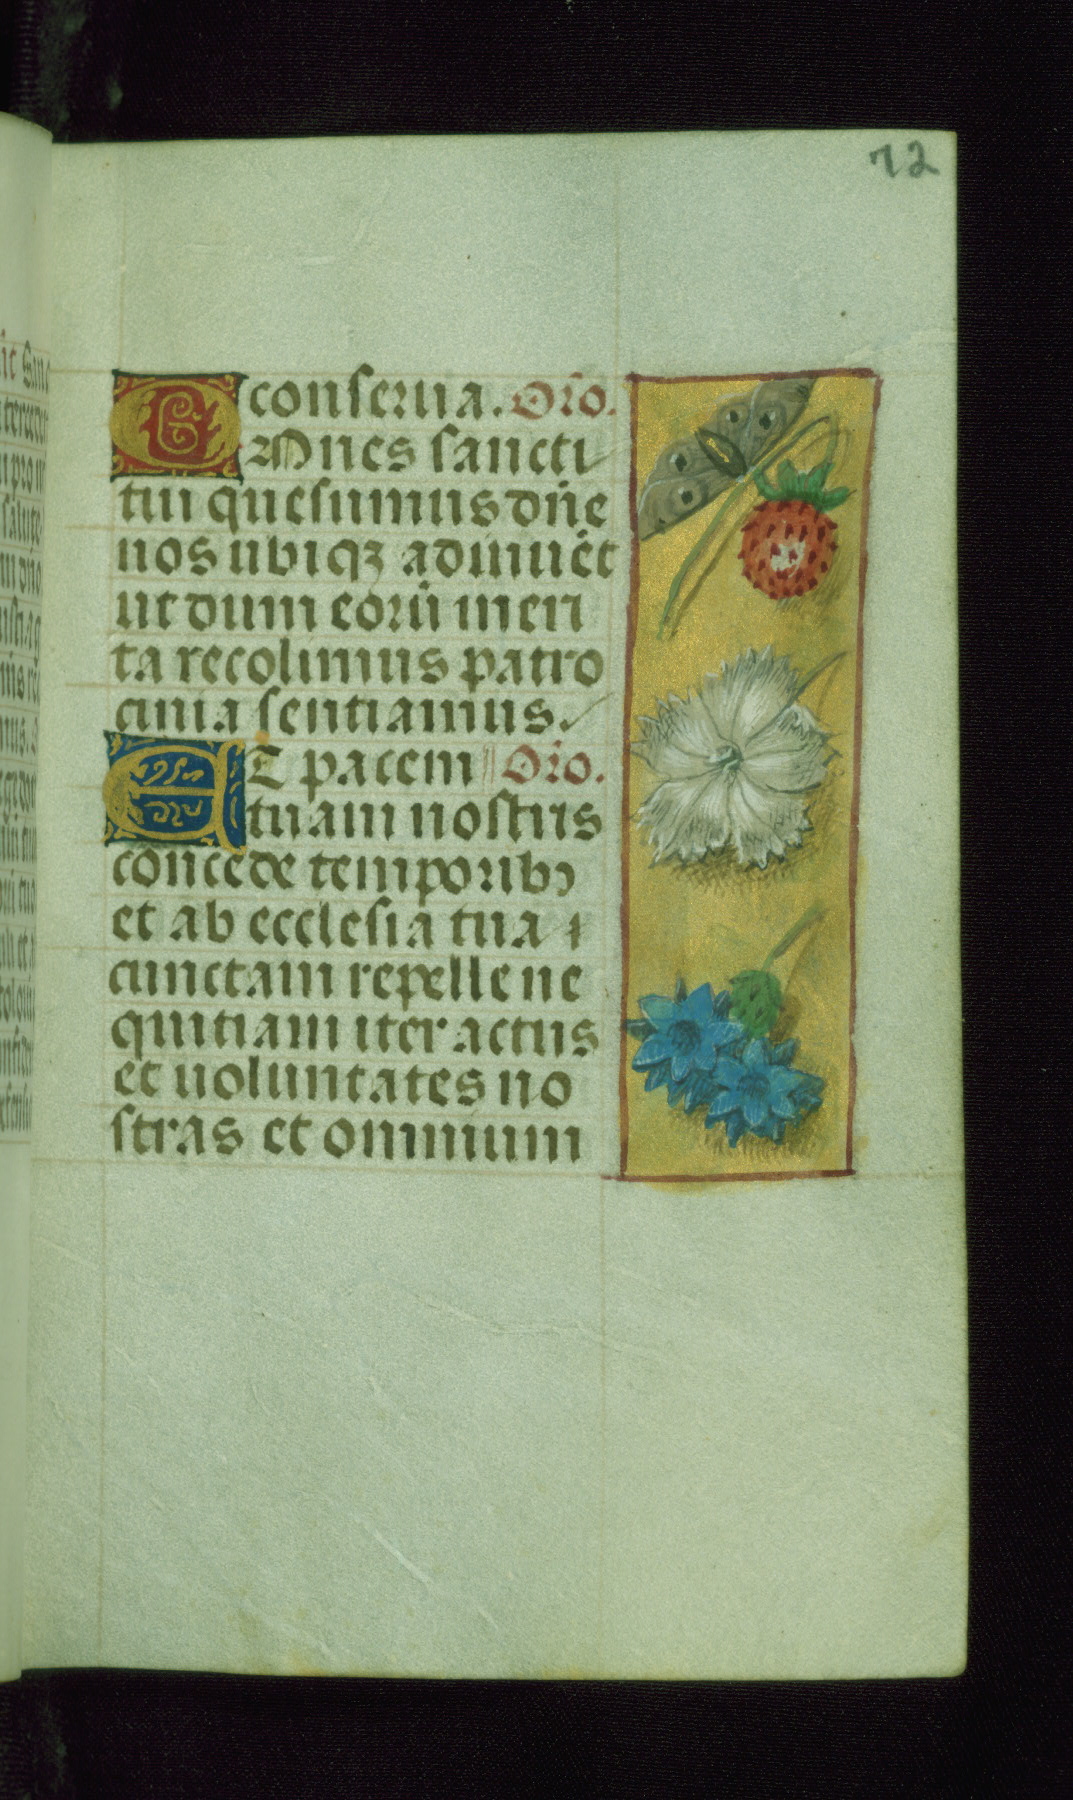 72
conserua. Oro.
OMnes sancti
tui quesumus dñe
nos ubiqꝫ adiuuẽt
ut dum eorũ meri
ta recolimus patro
cinia sentiamus.
ET pacem Oro.
tuam nostris
concede temporibꝰ
et ab ecclesia tua
cunctam repelle ne
quitiam iter actus
et uoluntates no
stras et omnium